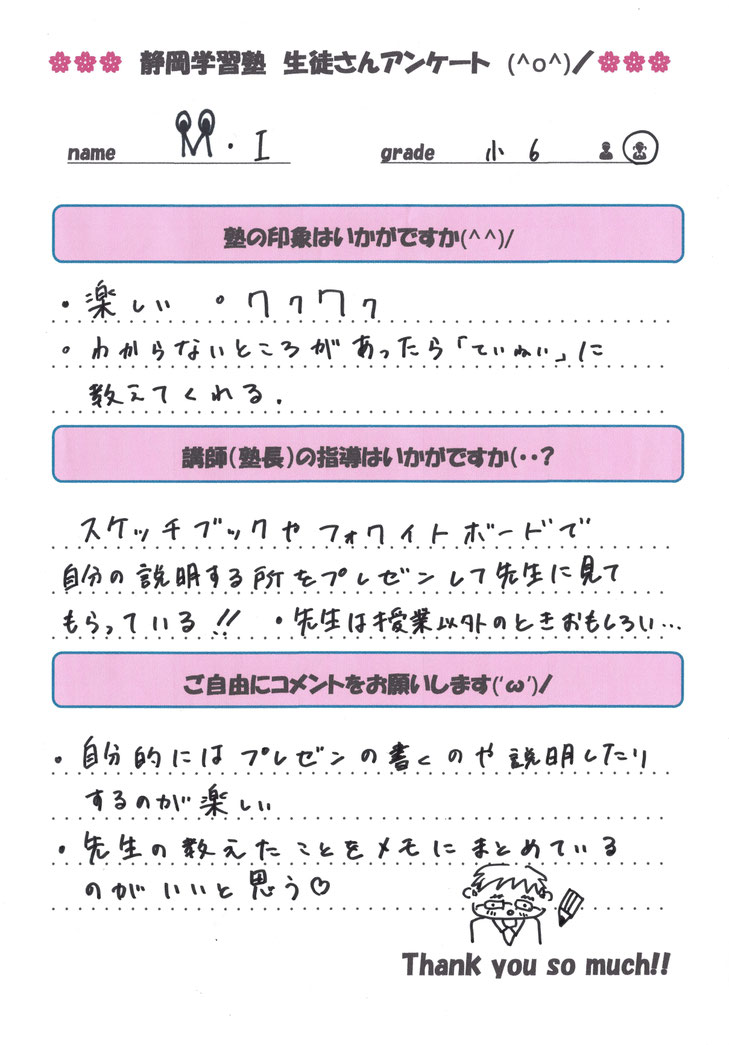 静岡学習塾 生徒さんアンケート (^o^)/
name M・I grade 小6
塾の印象はいかがですか(^^)/
・楽しい ・ワクワク
・わからないところがあったら「ていねい」に
教えてくれる.
講師(塾長)の指導はいかがですか(・・?
スケッチブックやフォワイトボードで
自分の説明する所をプレゼンして先生に見て
もらっている!! ・先生は授業以外のときおもしろい…
ご自由にコメントをお願いします('ω')/
・自分的にはプレゼンの書くのや説明したり
するのが楽しい
・先生の教えたことをメモにまとめている
のがいいと思う♡
Thank you so much!!